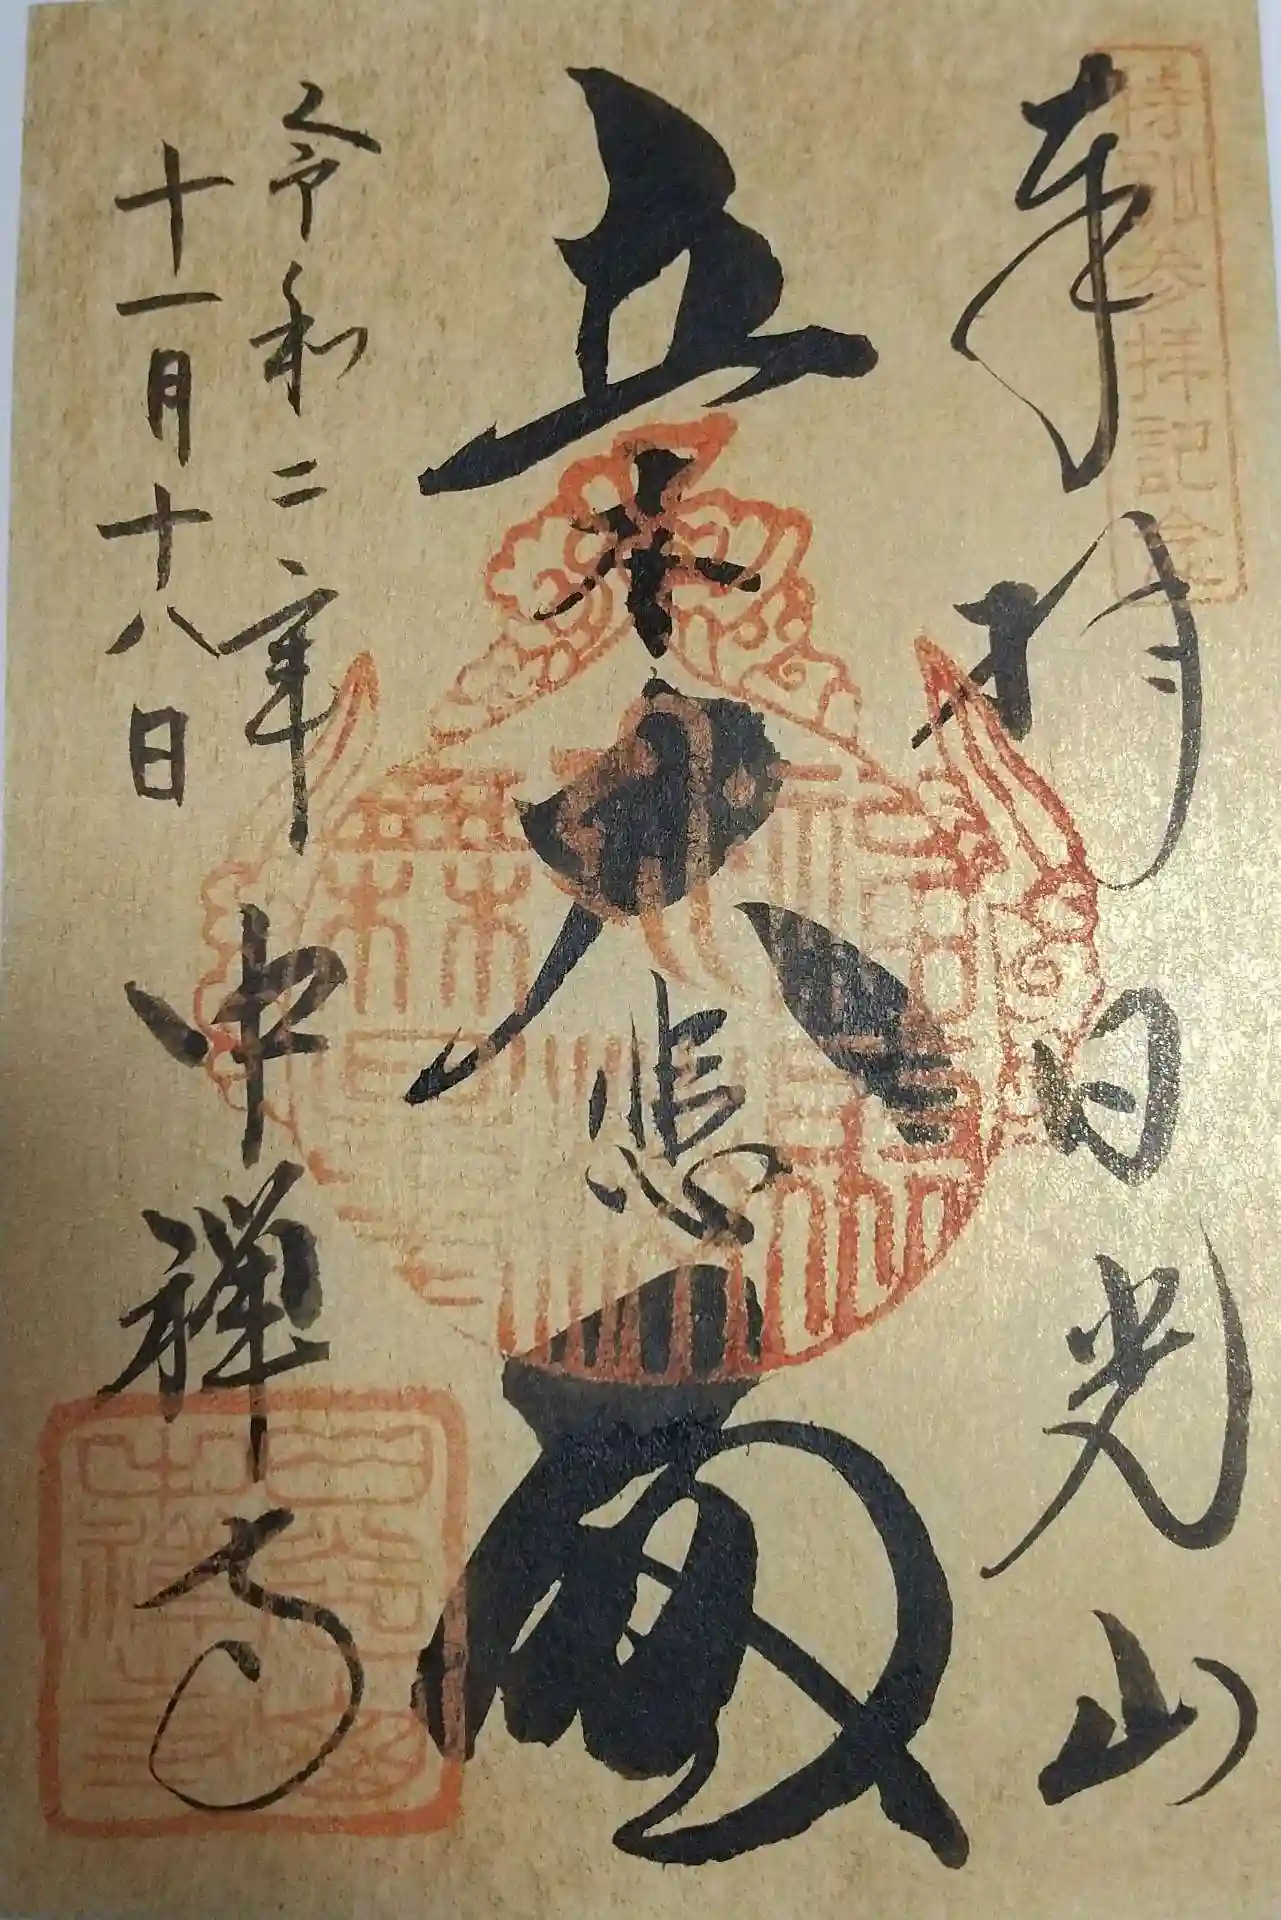 特別参拝記念
奉拝 日光山
立木大悲殿
令和二年
十一月十八日
中禅寺